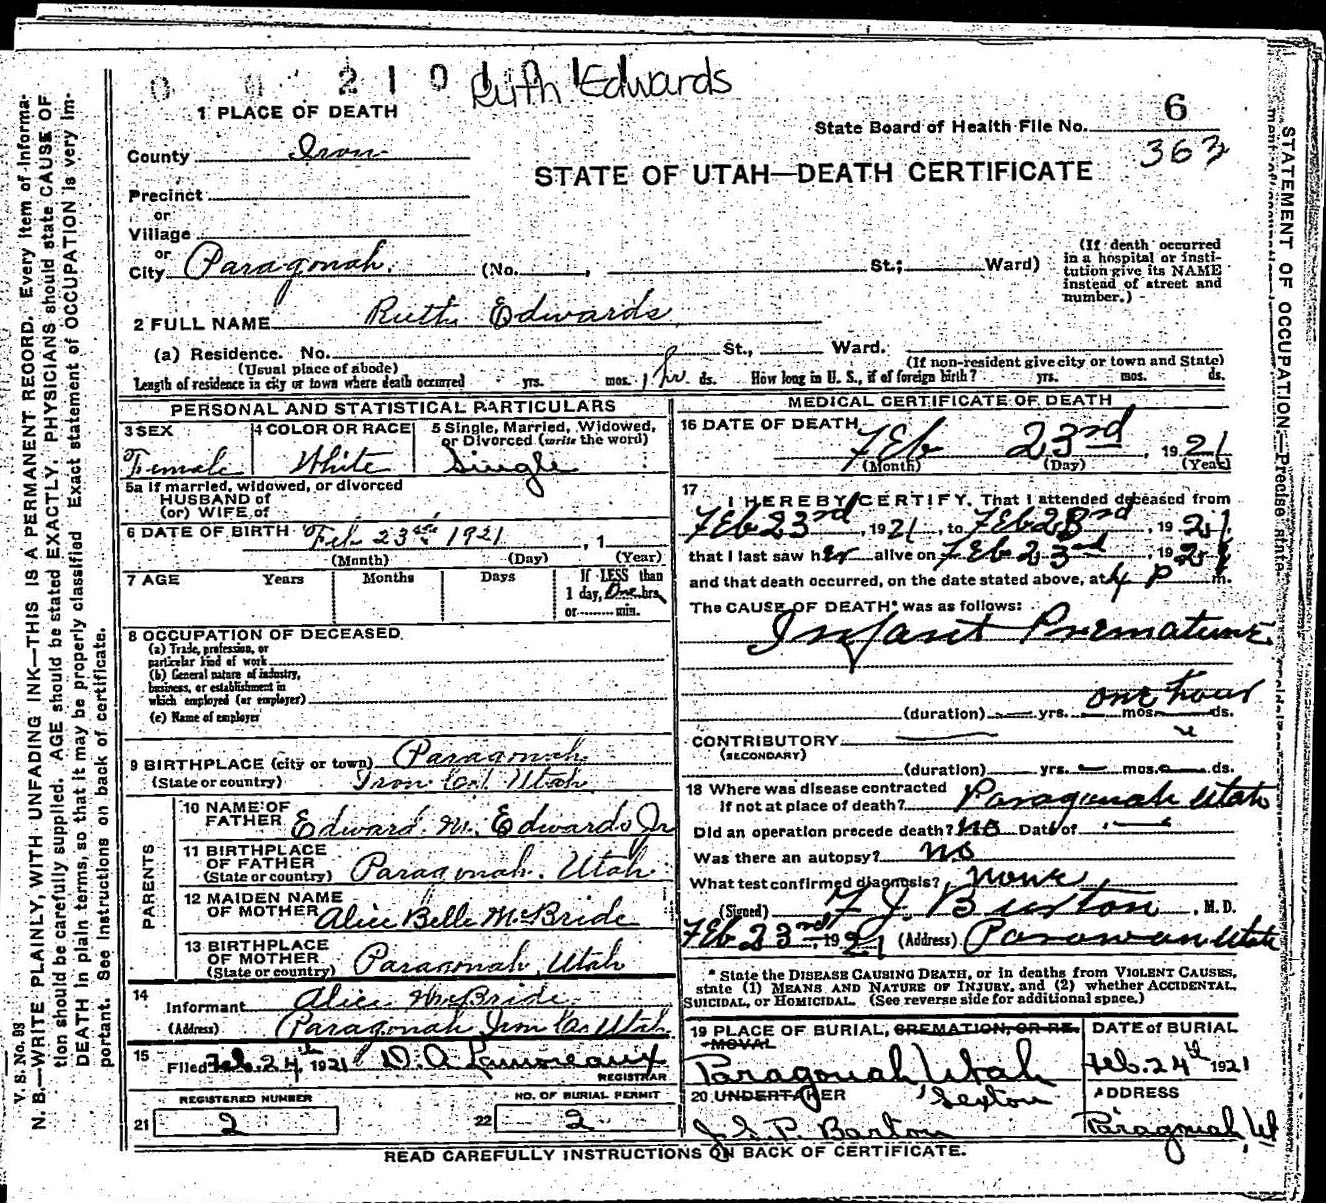 0 0 2 1 0 1 Ruth Edwards
1 PLACE OF DEATH
County Iron
State Board of Health File No. 6
363
STATE OF UTAH—DEATH CERTIFICATE
Precinct
or
Village
or
City Paragonah. (No. , St.; Ward)
(If death occurred in a hospital or insti-
tution give its NAME
instead of street and
number.)
2 FULL NAME Ruth Edwards
(a) Residence. No. St., Ward.
(Usual place of abode) (If non-resident give city or town and State)
Length of residence in city or town where death occurred yrs. mos. 1 hr ds. How long in U. S., if of foreign birth? yrs. mos. ds.
PERSONAL AND STATISTICAL PARTICULARS
3 SEX 4 COLOR OR RACE 5 Single, Married, Widowed,
or Divorced (write the word)
Female White Single
5a If married, widowed, or divorced
HUSBAND of
(or) WIFE of
6 DATE OF BIRTH Feb 23rd 1921 , 1
(Month) (Day) (Year)
7 AGE Years Months Days If LESS than
1 day, One hrs.
or min.
8 OCCUPATION OF DECEASED
(a) Trade, profession, or
particular kind of work
(b) General nature of industry,
business, or establishment in
which employed (or employer)
(c) Name of employer
9 BIRTHPLACE (city or town) Paragonah
(State or country) Iron Co. Utah
PARENTS
10 NAME OF
FATHER Edward M. Edwards Jr
11 BIRTHPLACE
OF FATHER
(State or country) Paragonah. Utah
12 MAIDEN NAME
OF MOTHER Alice Belle McBride
13 BIRTHPLACE
OF MOTHER
(State or country) Paragonah, Utah
14
Informant Alice McBride
(Address) Paragonah Iron Co. Utah
15
Filed Feb. 24th 1921 D. A. Lamoreaux
REGISTRAR
REGISTERED NUMBER NO. OF BURIAL PERMIT
21 2 22 2
MEDICAL CERTIFICATE OF DEATH
16 DATE OF DEATH
Feb 23rd , 1921
(Month) (Day) (Year)
17
I HEREBY CERTIFY, That I attended deceased from
Feb 23rd, 1921, to Feb 23rd, 1921
that I last saw her alive on Feb 23rd, 1921
and that death occurred, on the date stated above, at 4 P m.
The CAUSE OF DEATH* was as follows:
Infant Premature
one hour
(duration) yrs. mos. ds.
CONTRIBUTORY
(SECONDARY)
(duration) yrs. mos. ds.
18 Where was disease contracted
if not at place of death? Paragonah Utah
Did an operation precede death? No Date of
Was there an autopsy? No
What test confirmed diagnosis? None
(Signed) F J Burton , M.D.
Feb 23rd 1921 (Address) Parowan Utah
* State the DISEASE CAUSING DEATH, or in deaths from VIOLENT CAUSES,
state (1) MEANS AND NATURE OF INJURY, and (2) whether ACCIDENTAL,
SUICIDAL, or HOMICIDAL. (See reverse side for additional space.)
19 PLACE OF BURIAL, CREMATION, OR RE-
MOVAL
DATE of BURIAL
Paragonah Utah Feb. 24th 1921
20 UNDERTAKER Sexton ADDRESS
J. S. P. Barton Paragonah, Ut
READ CAREFULLY INSTRUCTIONS ON BACK OF CERTIFICATE.
V. S. No. 98
N. B.—WRITE PLAINLY, WITH UNFADING INK—THIS IS A PERMANENT RECORD. Every item of informa-
tion should be carefully supplied. AGE should be stated EXACTLY. PHYSICIANS should state CAUSE OF
DEATH in plain terms, so that it may be properly classified. Exact statement of OCCUPATION is very im-
portant. See instructions on back of certificate.
STATEMENT OF OCCUPATION.—Precise state-